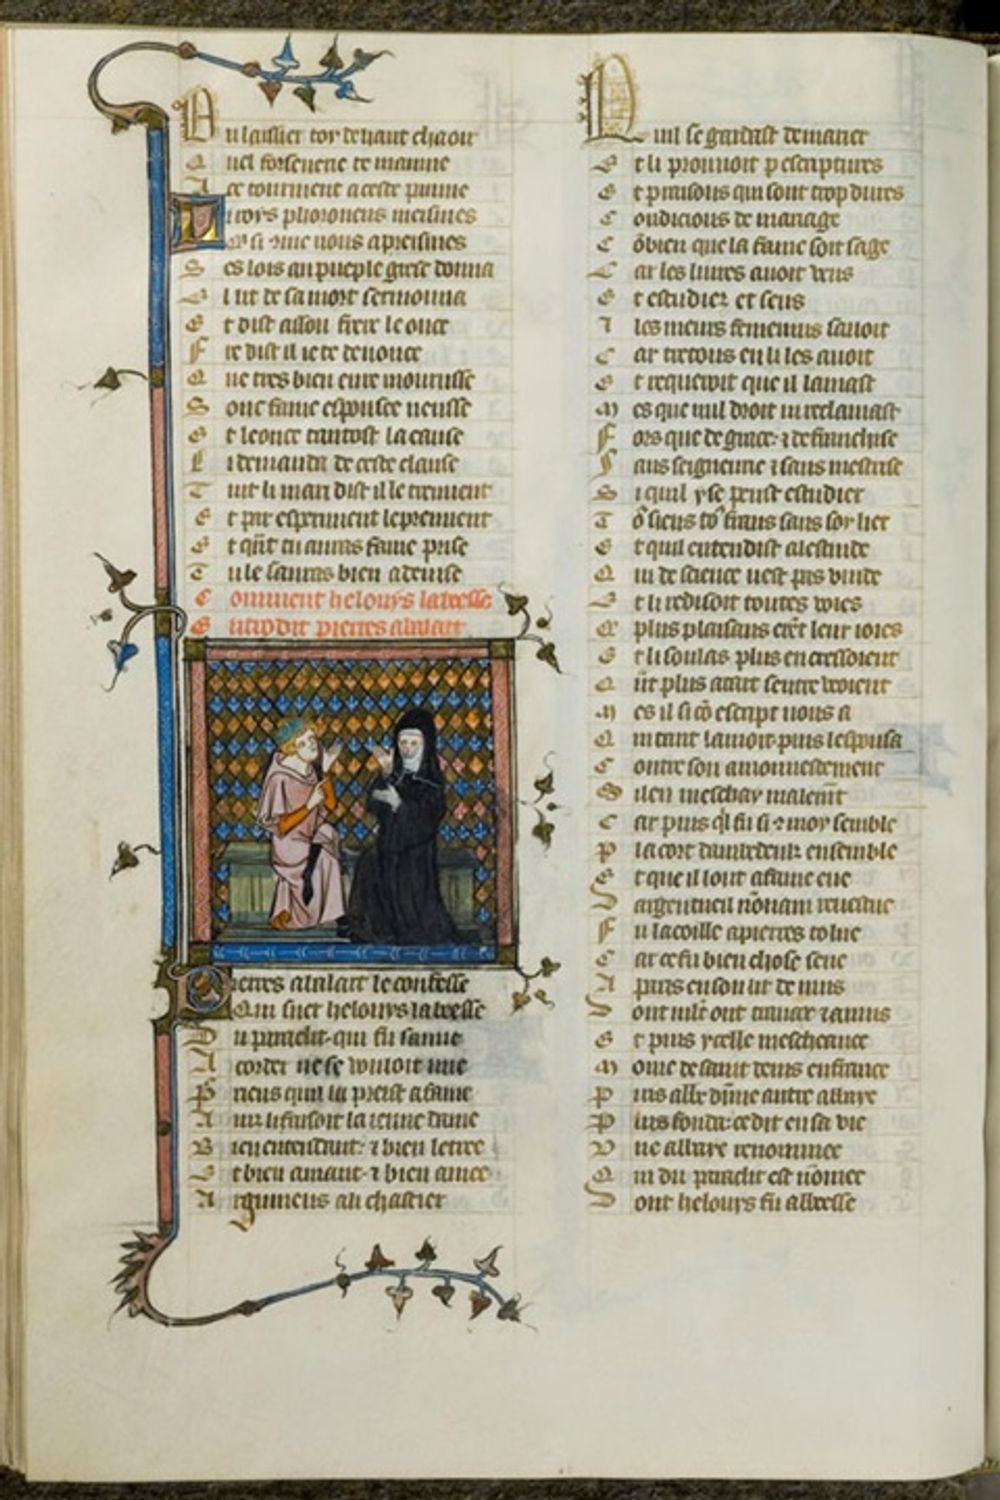 Du laissier toy devant chaoir
Quel forsenerie te maine
A ce tourment a ceste paine
Li roys phoroneus meismes
Qui si 9me nous apreismes
Ses lois au pueple grest donna
El lit de sa mort sermonna
Et dist a son frere leonce
Frere dist il ie te denonce
Que tres bien eure mourusse
Sonc fame espousee neusse
Et leonce tantost la cause
Li demanda de ceste clause
Tuit li mari dist il le treuuent
Et par esperiment lepreuuent
Et qnt tu auras fame prise
Tu le sauras bien a deuise
Comment heloys labesse
Estriv dit pierres abalart
Pierres abalart le confesse
Que suer heloys labesse
Du paraclit qui fu samie
Acorder ne se vouloit mie
Pneus quil la preist a fame
Ainz li faisoit la ieune dame
Bien entendant 7 bien letree
Et bien amant 7 bien amee
Argumens au chastier
Quil se gardast de marier
Et li prouuoit p escriptures
Et p raisons qui sont trop dures
Condicions de mariage
Cõbien que la fame soit sage
Car les liures auoit veus
Et estudiez et seus
Et les meurs femenins sauoit
Car trestous en li les auoit
Et requeroit que il lamast
Mes que nul droit ni reclamast
Fors que de grace 7 de franchise
Sans seigneurie 7 sans mestrise
Si quil y se peust estudier
Tõ siens tõ frans sans soy lier
Et quil entendist a lestuide
Qui de science nest pas vuide
Et li redisoit toutes voies
Que plus plaisans erẽt leur ioies
Et li soulas plus en cressoient
Qñt plus atart sentre veoient
Mes il si cõ escript nous a
Qui tant lamoit puis lespousa
Contre son amonnestement
Si len meschay malemẽt
Car puis ql fu si 9 moy semble
Par lacort dambedeux ensemble
Et que il lout a fame eue
Dargentueil nõnain reuestue
Fu la coille a pierres tolue
Car ce fu bien chose seue
A paris en son lit de nuis
Dont mlt ont trauax 7 anuis
Et puis ycelle mescheance
Moine de saint denis en france
Puis abbe dune autre abbaye
Puis fonda ce dit en sa vie
Une abbaye renommee
Qui du paraclit est nõmee
Dont heloys fu abbeesse